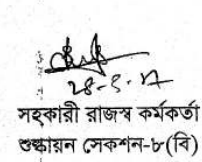 সহকারী রাজস্ব কর্মকর্তা
শুল্কায়ন সেকশন-৮(বি)